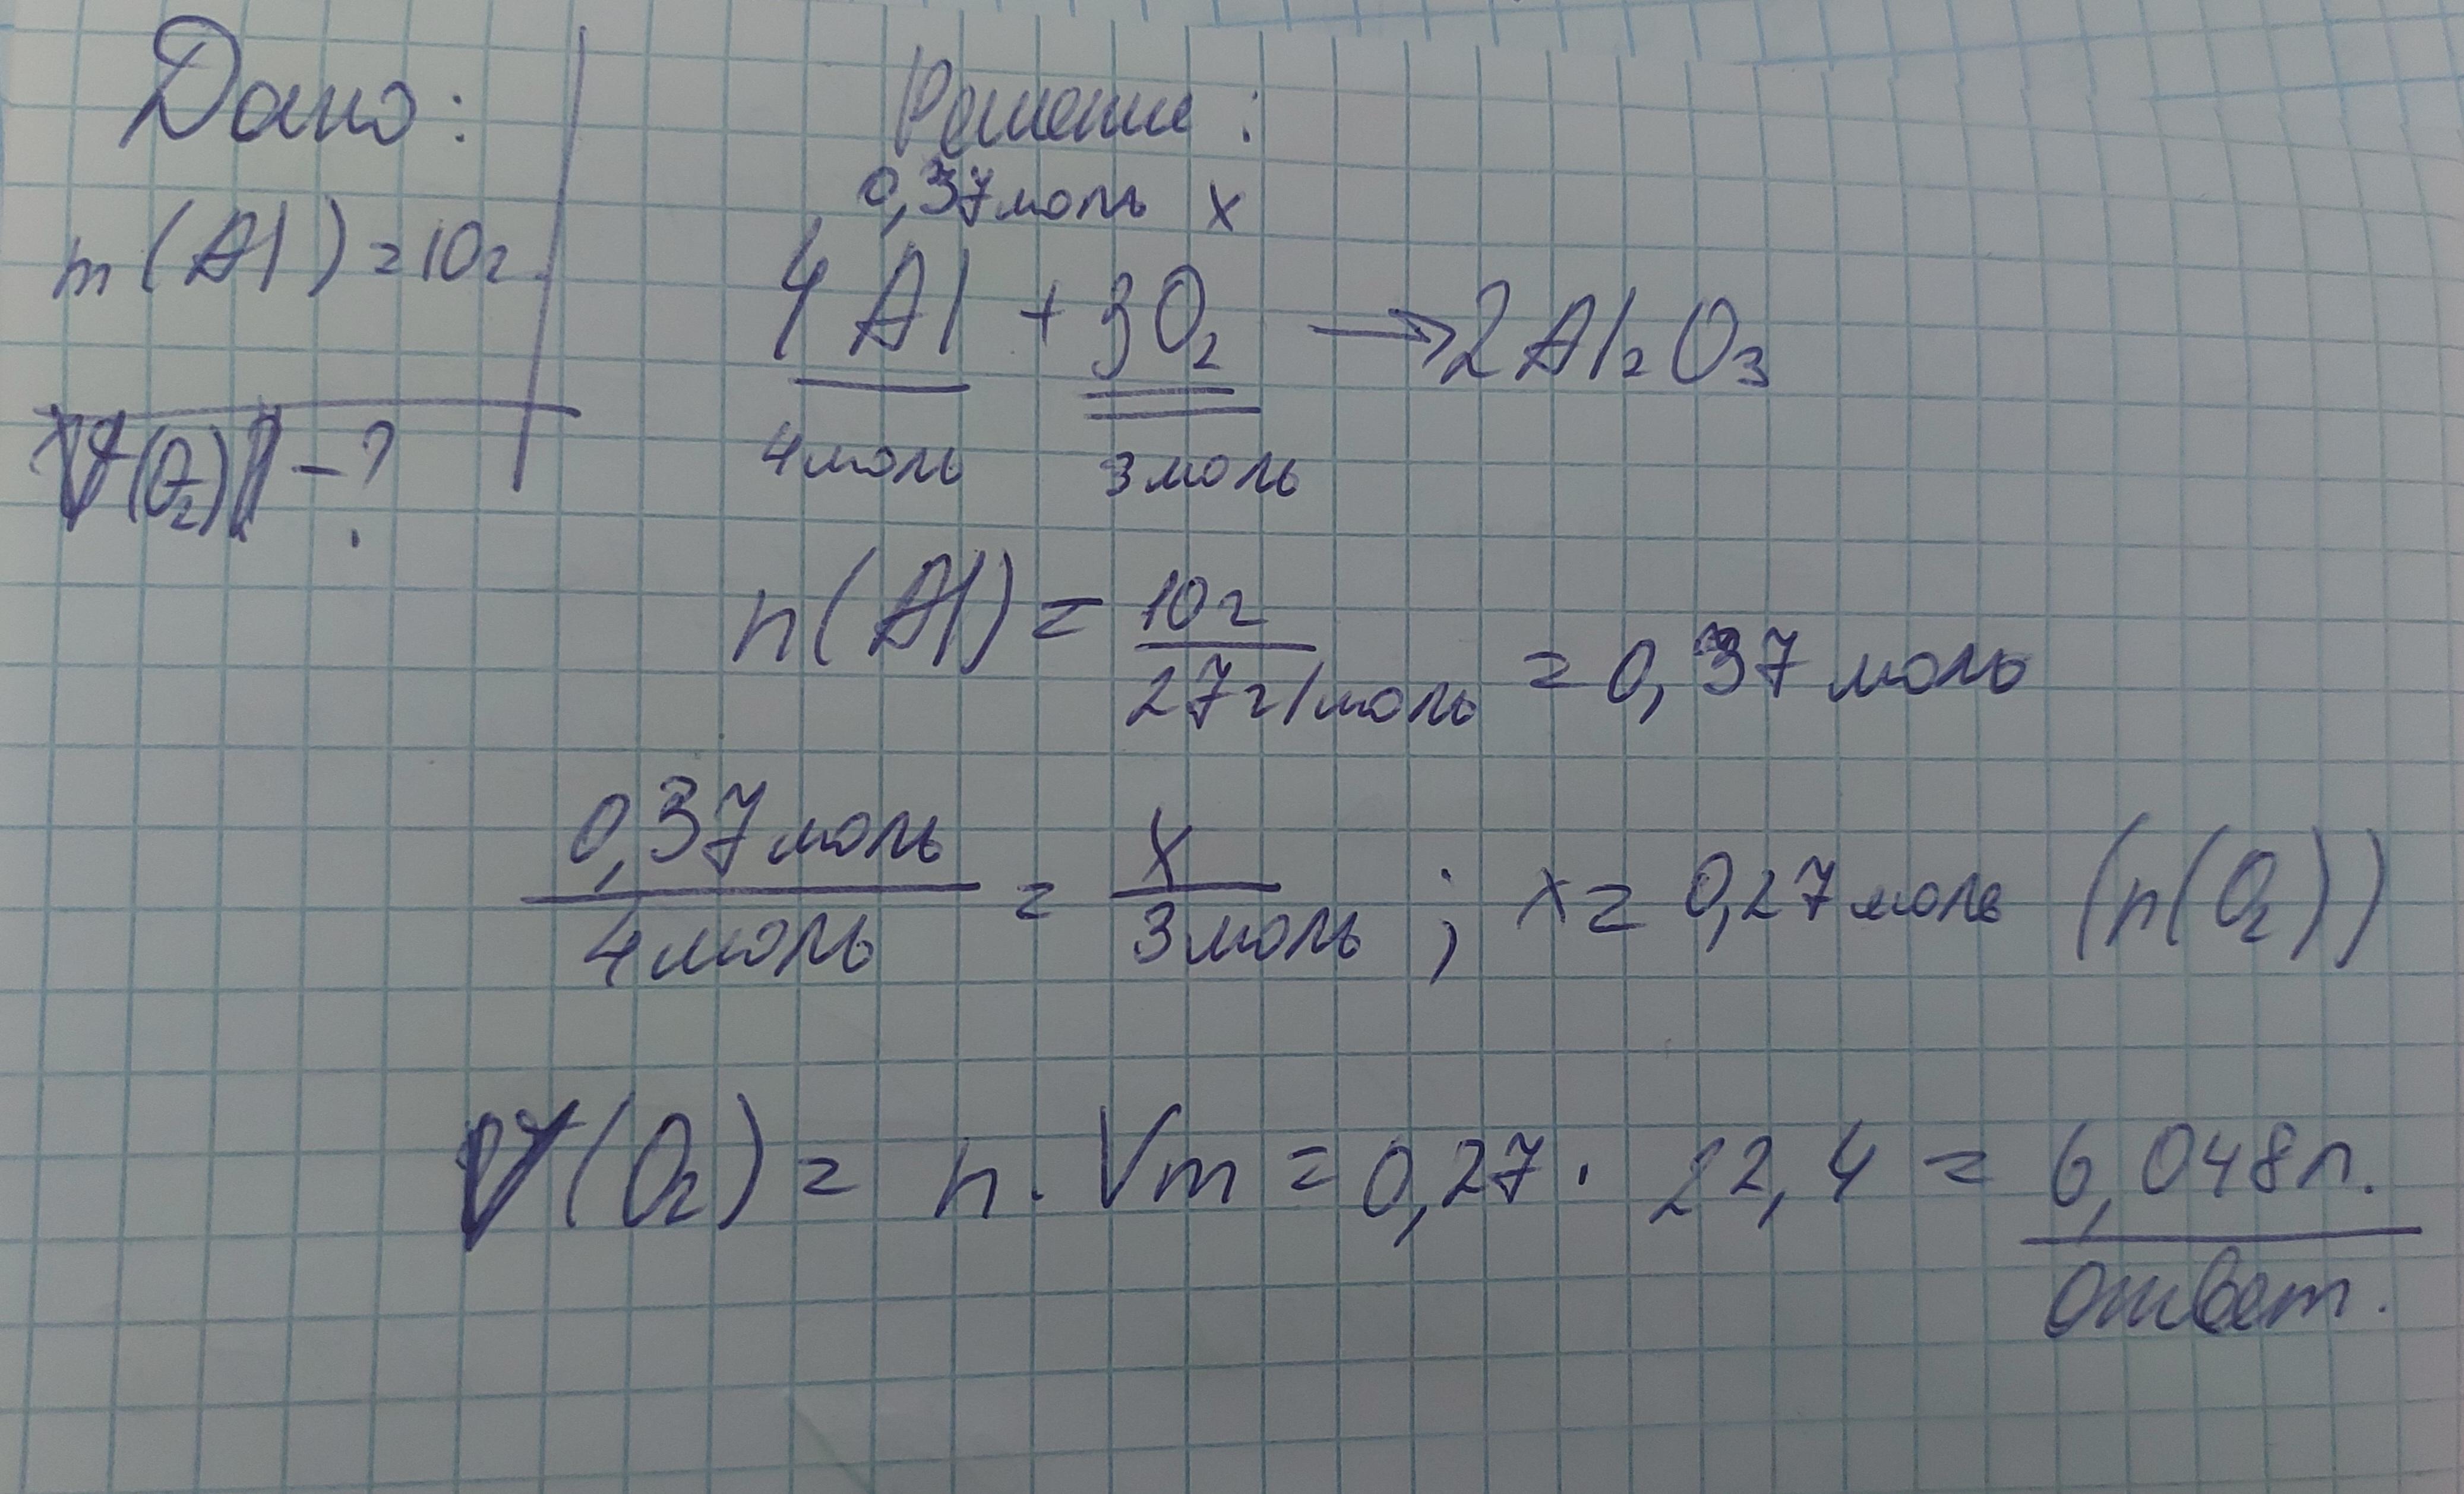 Дано:
m(Al)=10г
V(O₂) -?
Решение:
0,37моль x
4Al + 3O₂ → 2Al₂O₃
4моль 3моль
n(Al) = 10г / 27г/моль = 0,37 моль
0,37моль / 4моль = x / 3моль ; x = 0,27моль (n(O₂))
V(O₂) = n · Vm = 0,27 · 22,4 = 6,048л.
ответ.